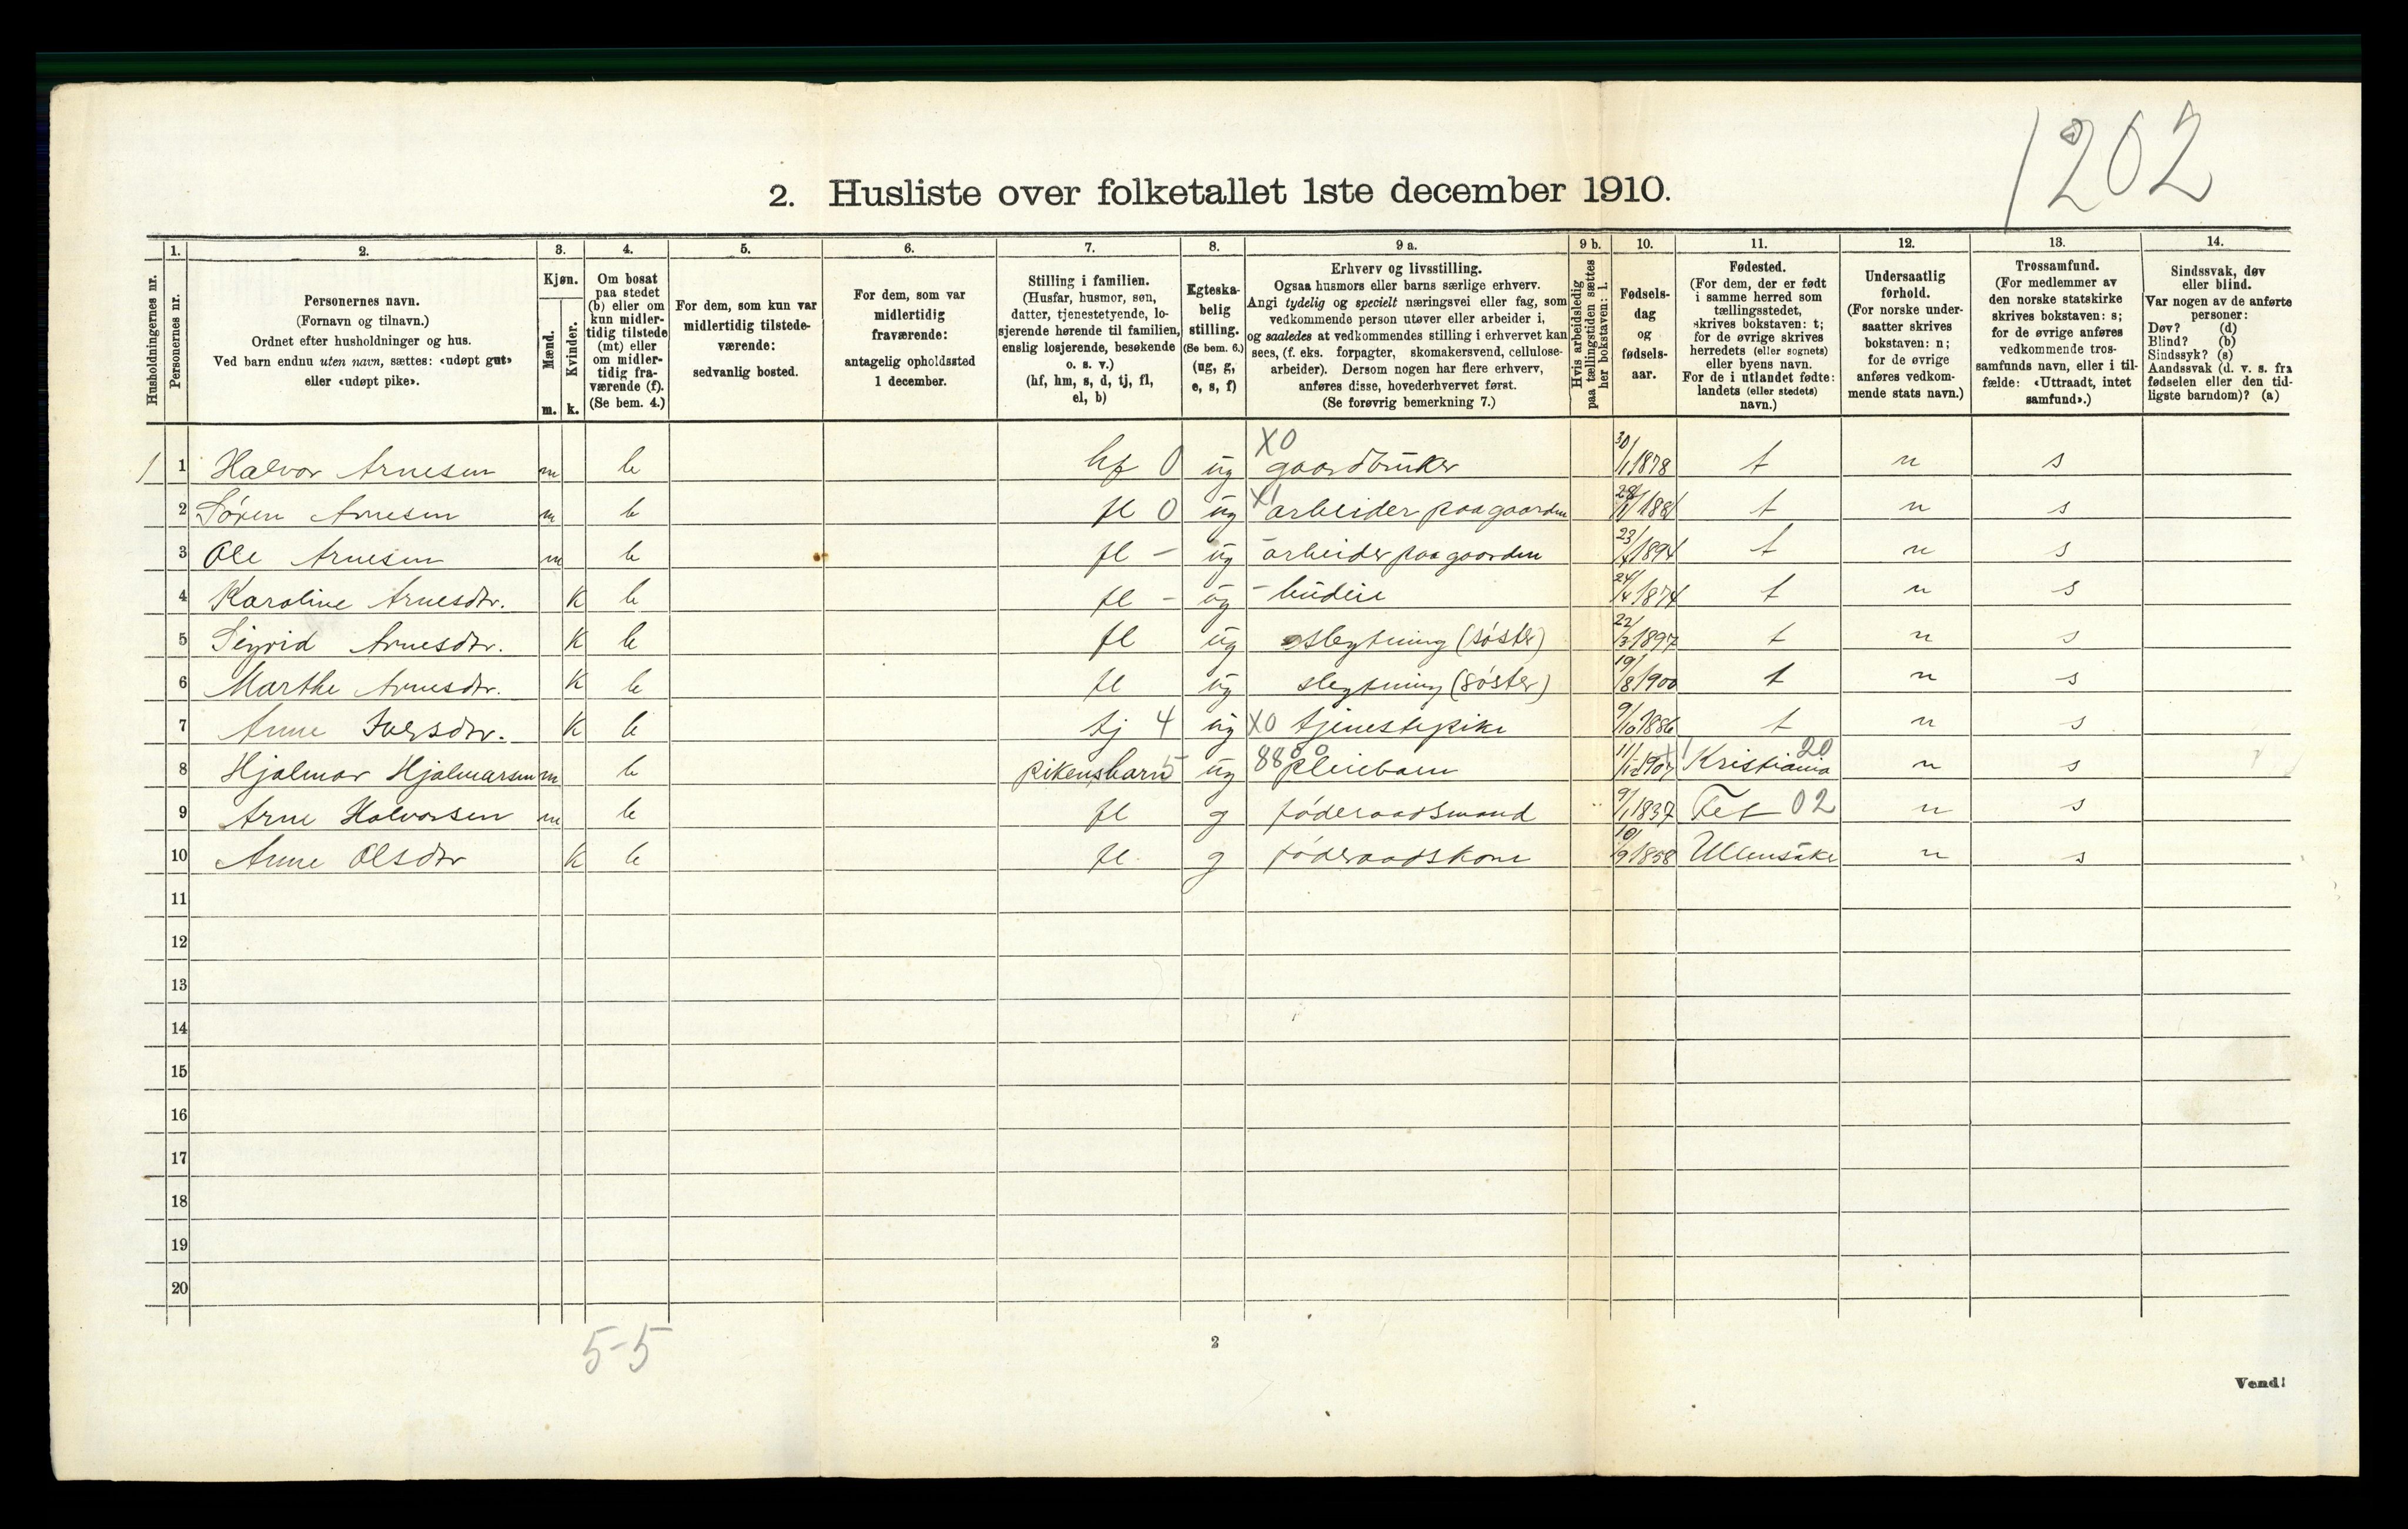 1202
2. Husliste over folketallet 1ste december 1910.
1. 2. 3. 4. 5. 6. 7. 8. 9 a. 9 b. 10. 11. 12. 13. 14.
Husholdningernes nr.
Personernes nr.
Personernes navn.
(Fornavn og tilnavn.)
Ordnet efter husholdninger og hus.
Ved barn endnu uten navn, sættes: «udøpt gut»
eller «udøpt pike».
Kjøn.
Mænd.
Kvinder.
m. k.
Om bosat
paa stedet
(b) eller om
kun midler-
tidig tilstede
(mt) eller
om midler-
tidig fra-
værende (f).
(Se bem. 4.)
For dem, som kun var
midlertidig tilstede-
værende:
sedvanlig bosted.
For dem, som var
midlertidig
fraværende:
antagelig opholdssted
1 december.
Stilling i familien.
(Husfar, husmor, søn,
datter, tjenestetyende, lo-
sjerende hørende til familien,
enslig losjerende, besøkende
o. s. v.)
(hf, hm, s, d, tj, fl,
el, b)
Egteska-
belig
stilling.
(Se bem. 6.)
(ug, g,
e, s, f)
Erhverv og livsstilling.
Ogsaa husmors eller barns særlige erhverv.
Angi tydelig og specielt næringsvei eller fag, som
vedkommende person utøver eller arbeider i,
og saaledes at vedkommendes stilling i erhvervet kan
sees, (f. eks. forpagter, skomakersvend, cellulose-
arbeider). Dersom nogen har flere erhverv,
anføres disse, hovederhvervet først.
(Se forøvrig bemerkning 7.)
Hvis arbeidsledig
paa tællingstiden sættes
her bokstaven: l.
Fødsels-
dag
og
fødsels-
aar.
Fødested.
(For dem, der er født
i samme herred som
tællingsstedet,
skrives bokstaven: t;
for de øvrige skrives
herredets (eller sognets)
eller byens navn.
For de i utlandet fødte:
landets (eller stedets)
navn.)
Undersaatlig
forhold.
(For norske under-
saatter skrives
bokstaven: n;
for de øvrige
anføres vedkom-
mende stats navn.)
Trossamfund.
(For medlemmer av
den norske statskirke
skrives bokstaven: s;
for de øvrige anføres
vedkommende tros-
samfunds navn, eller i til-
fælde: «Uttraadt, intet
samfund».)
Sindssvak, døv
eller blind.
Var nogen av de anførte
personer:
Døv? (d)
Blind? (b)
Sindssyk? (s)
Aandssvak (d. v. s. fra
fødselen eller den tid-
ligste barndom)? (a)
1 1 Halvor Arnesen m b hf 0 ug X0 gaardbruker 30/1 1878 t n s
2 Søren Arnesen m b fl 0 ug X1 arbeider paa gaarden 1881 t n s
3 Ole Arnesen m b fl - ug arbeider paa gaarden 1894 t n s
4 Karoline Arnesdtr. k b fl - ug - budeie 24/4 1874 t n s
5 Sigrid Arnesdtr. k b fl ug slegtning (søster) 1897 t n s
6 Marthe Arnesdtr. k b fl ug slegtning (søster) 19/8 1900 t n s
7 Anne Iversdtr. k b tj 4 ug X0 tjenestepike 9/10 1886 t n s
8 Hjalmar Hjalmarsen m b pikens barn 5 ug 88 pleiebarn 1907 Kristiania 20 n s
9 Arne Halvorsen m b fl g føderaadsmand 9/1 1837 Fet 02 n s
10 Anne Olsdtr k b fl g føderaadskone 10/9 1858 Ullensaker n s
11
12
13
14
15
16
17
18
19
20
5-5
2
Vend!